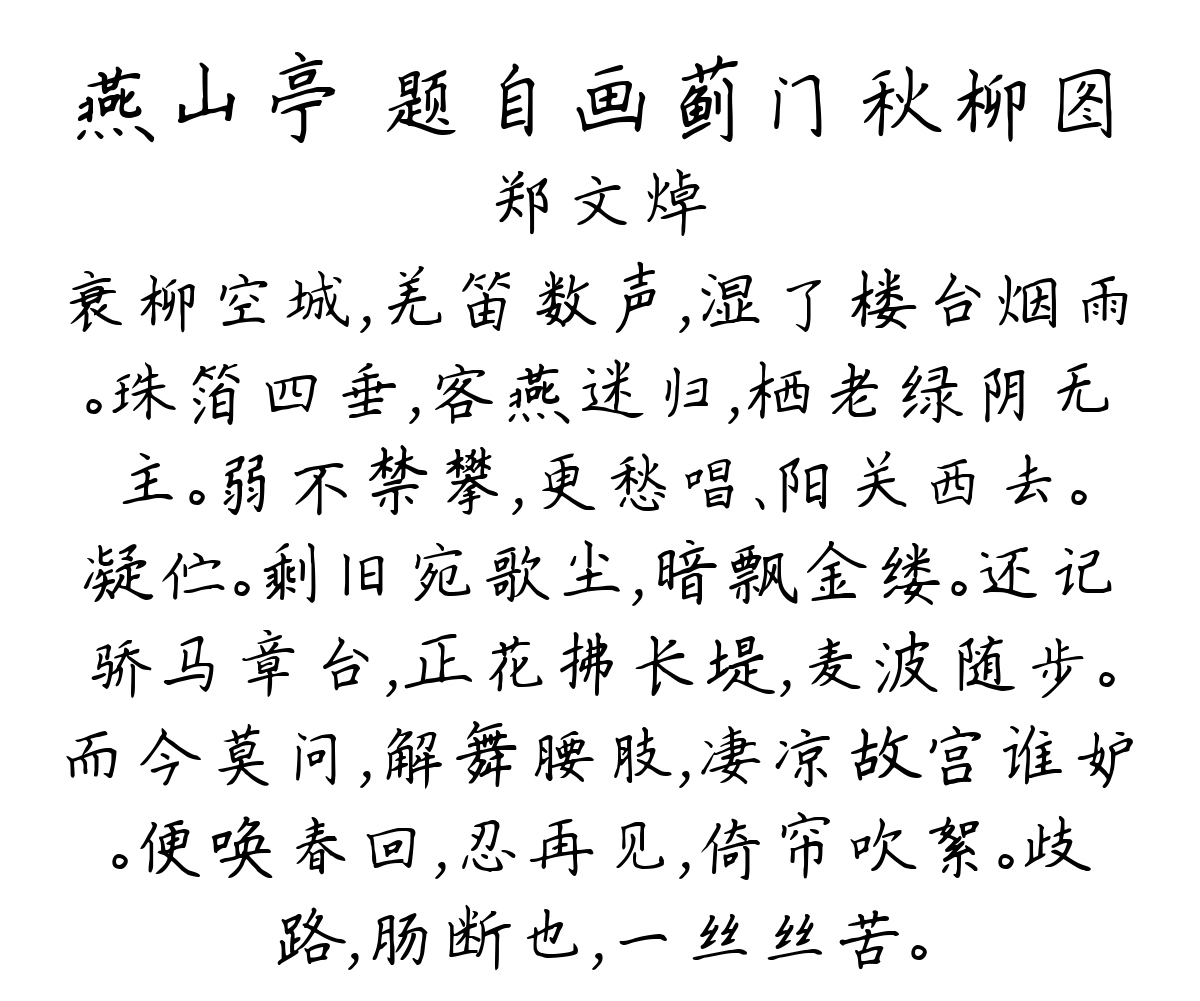 燕山亭 题自画蓟门秋柳图
郑文焯
衰柳空城,羌笛数声,湿了楼台烟雨
。珠箔四垂,客燕迷归,栖老绿阴无
主。弱不禁攀,更愁唱、阳关西去。
凝伫。剩旧宛歌尘,暗飘金缕。还记
骄马章台,正花拂长堤,麦波随步。
而今莫问,解舞腰肢,凄凉故宫谁妒
。便唤春回,忍再见,倚帘吹絮。歧
路,肠断也,一丝丝苦。